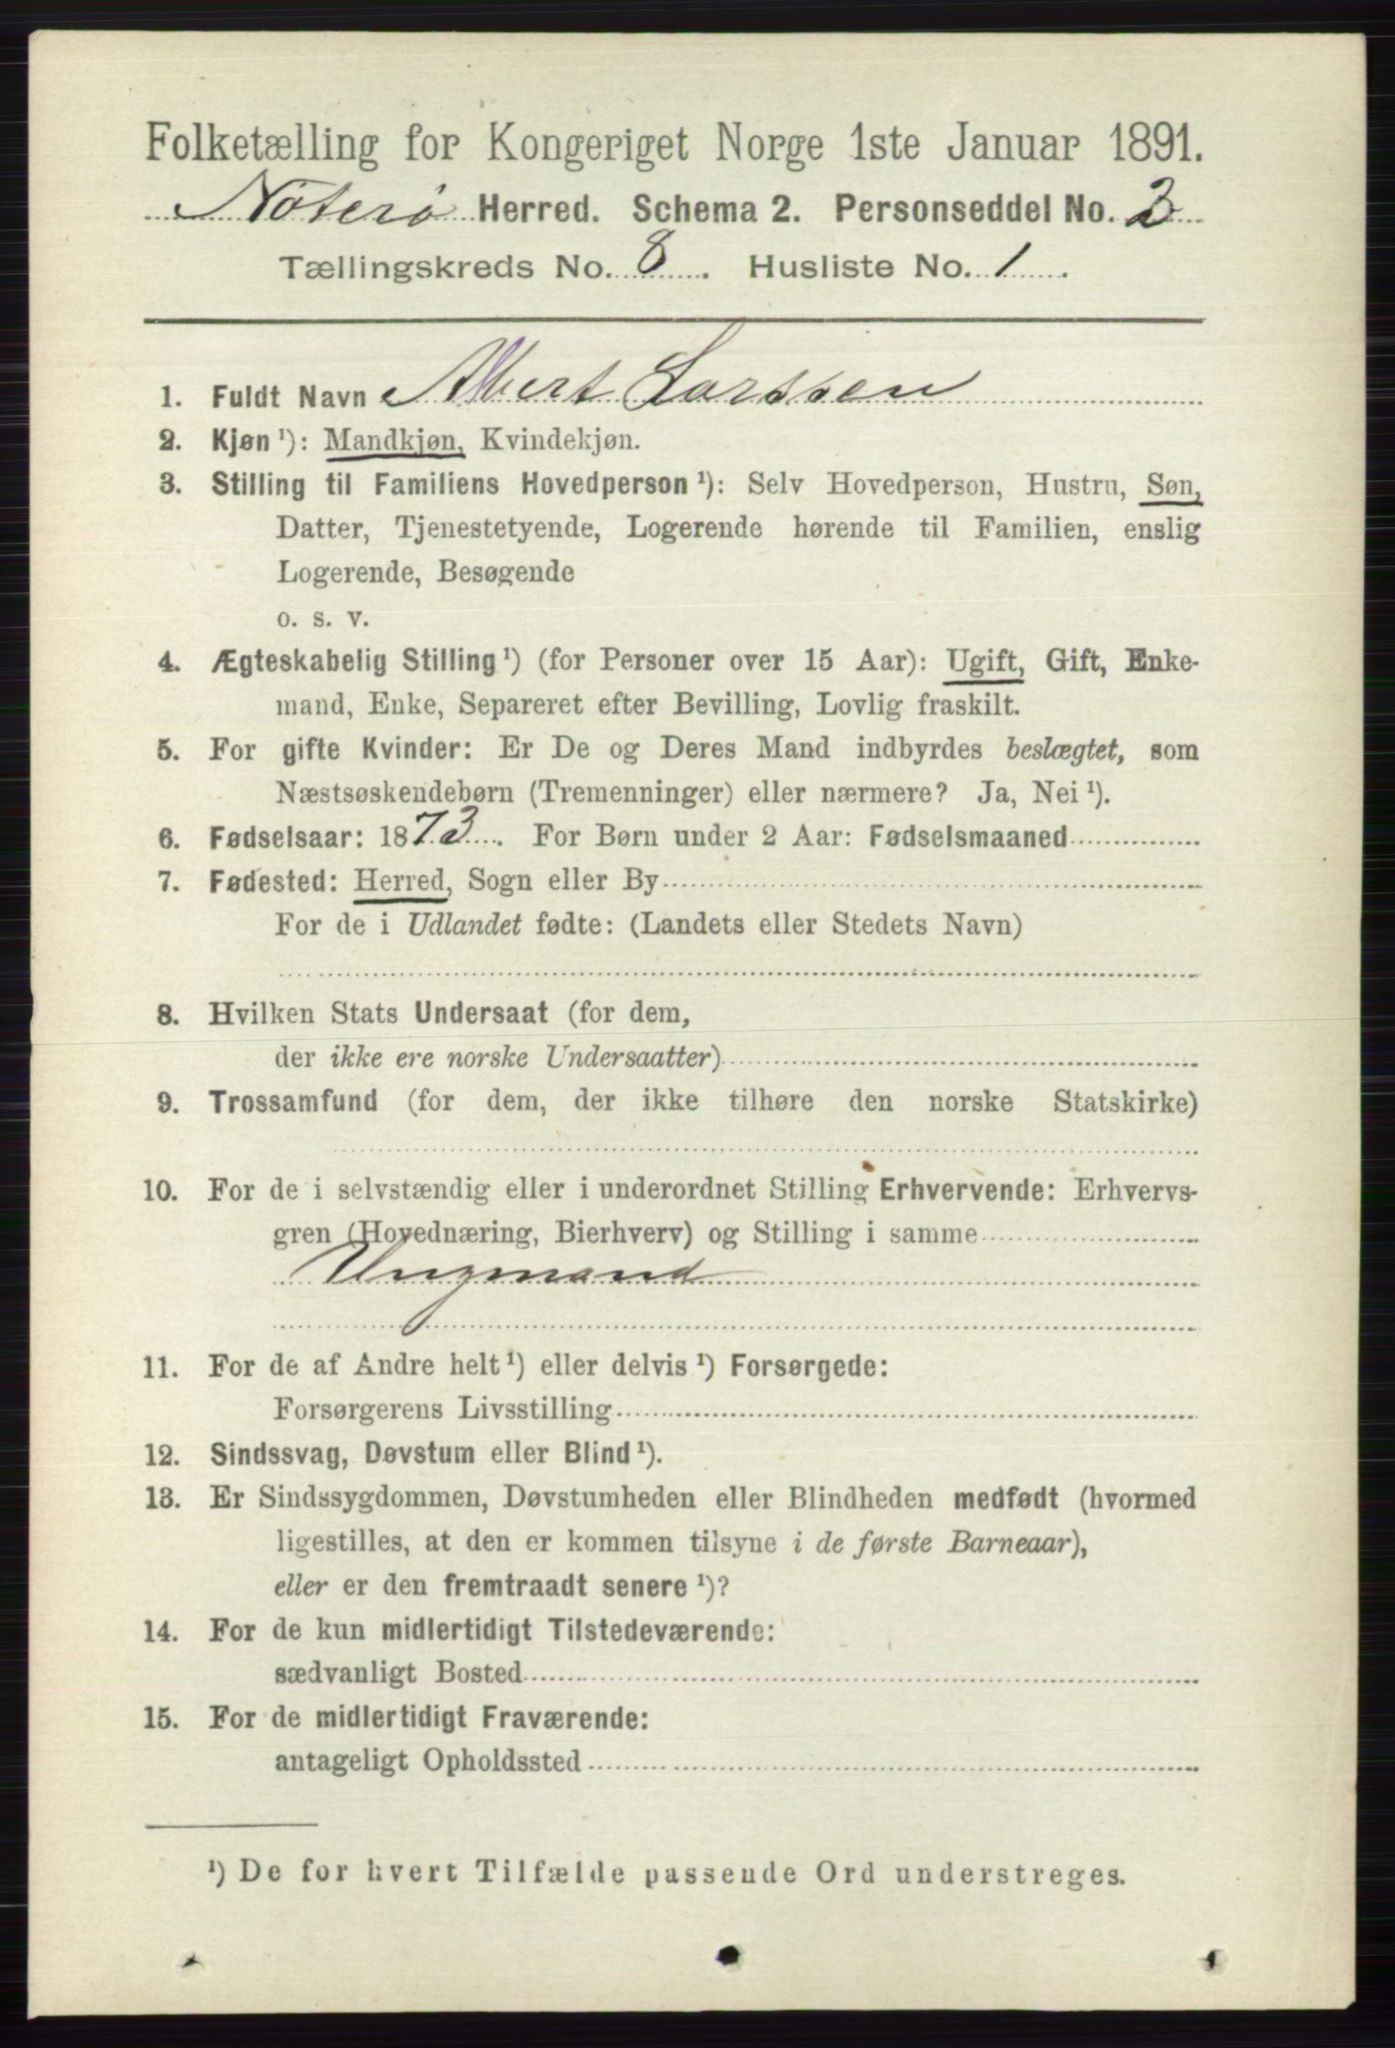 Folketælling for Kongeriget Norge 1ste Januar 1891.
Nøterø Herred. Schema 2. Personseddel No. 3
Tællingskreds No. 8. Husliste No. 1.
1. Fuldt Navn Albert Larssen
2. Kjøn ¹): Mandkjøn, Kvindekjøn.
3. Stilling til Familiens Hovedperson ¹): Selv Hovedperson, Hustru, Søn,
Datter, Tjenestetyende, Logerende hørende til Familien, enslig
Logerende, Besøgende
o. s. v.
4. Ægteskabelig Stilling ¹) (for Personer over 15 Aar): Ugift, Gift, Enke-
mand, Enke, Separeret efter Bevilling, Lovlig fraskilt.
5. For gifte Kvinder: Er De og Deres Mand indbyrdes beslægtet, som
Næstsøskendebørn (Tremenninger) eller nærmere? Ja, Nei ¹).
6. Fødselsaar: 1873. For Børn under 2 Aar: Fødselsmaaned
7. Fødested: Herred, Sogn eller By
For de i Udlandet fødte: (Landets eller Stedets Navn)
8. Hvilken Stats Undersaat (for dem,
der ikke ere norske Undersaatter)
9. Trossamfund (for dem, der ikke tilhøre den norske Statskirke)
10. For de i selvstændig eller i underordnet Stilling Erhvervende: Erhvervs-
gren (Hovednæring, Bierhverv) og Stilling i samme
Ungmand
11. For de af Andre helt ¹) eller delvis ¹) Forsørgede:
Forsørgerens Livsstilling
12. Sindssvag, Døvstum eller Blind ¹).
13. Er Sindssygdommen, Døvstumheden eller Blindheden medfødt (hvormed
ligestilles, at den er kommen tilsyne i de første Barneaar),
eller er den fremtraadt senere ¹)?
14. For de kun midlertidigt Tilstedeværende:
sædvanligt Bosted
15. For de midlertidigt Fraværende:
antageligt Opholdssted
¹) De for hvert Tilfælde passende Ord understreges.